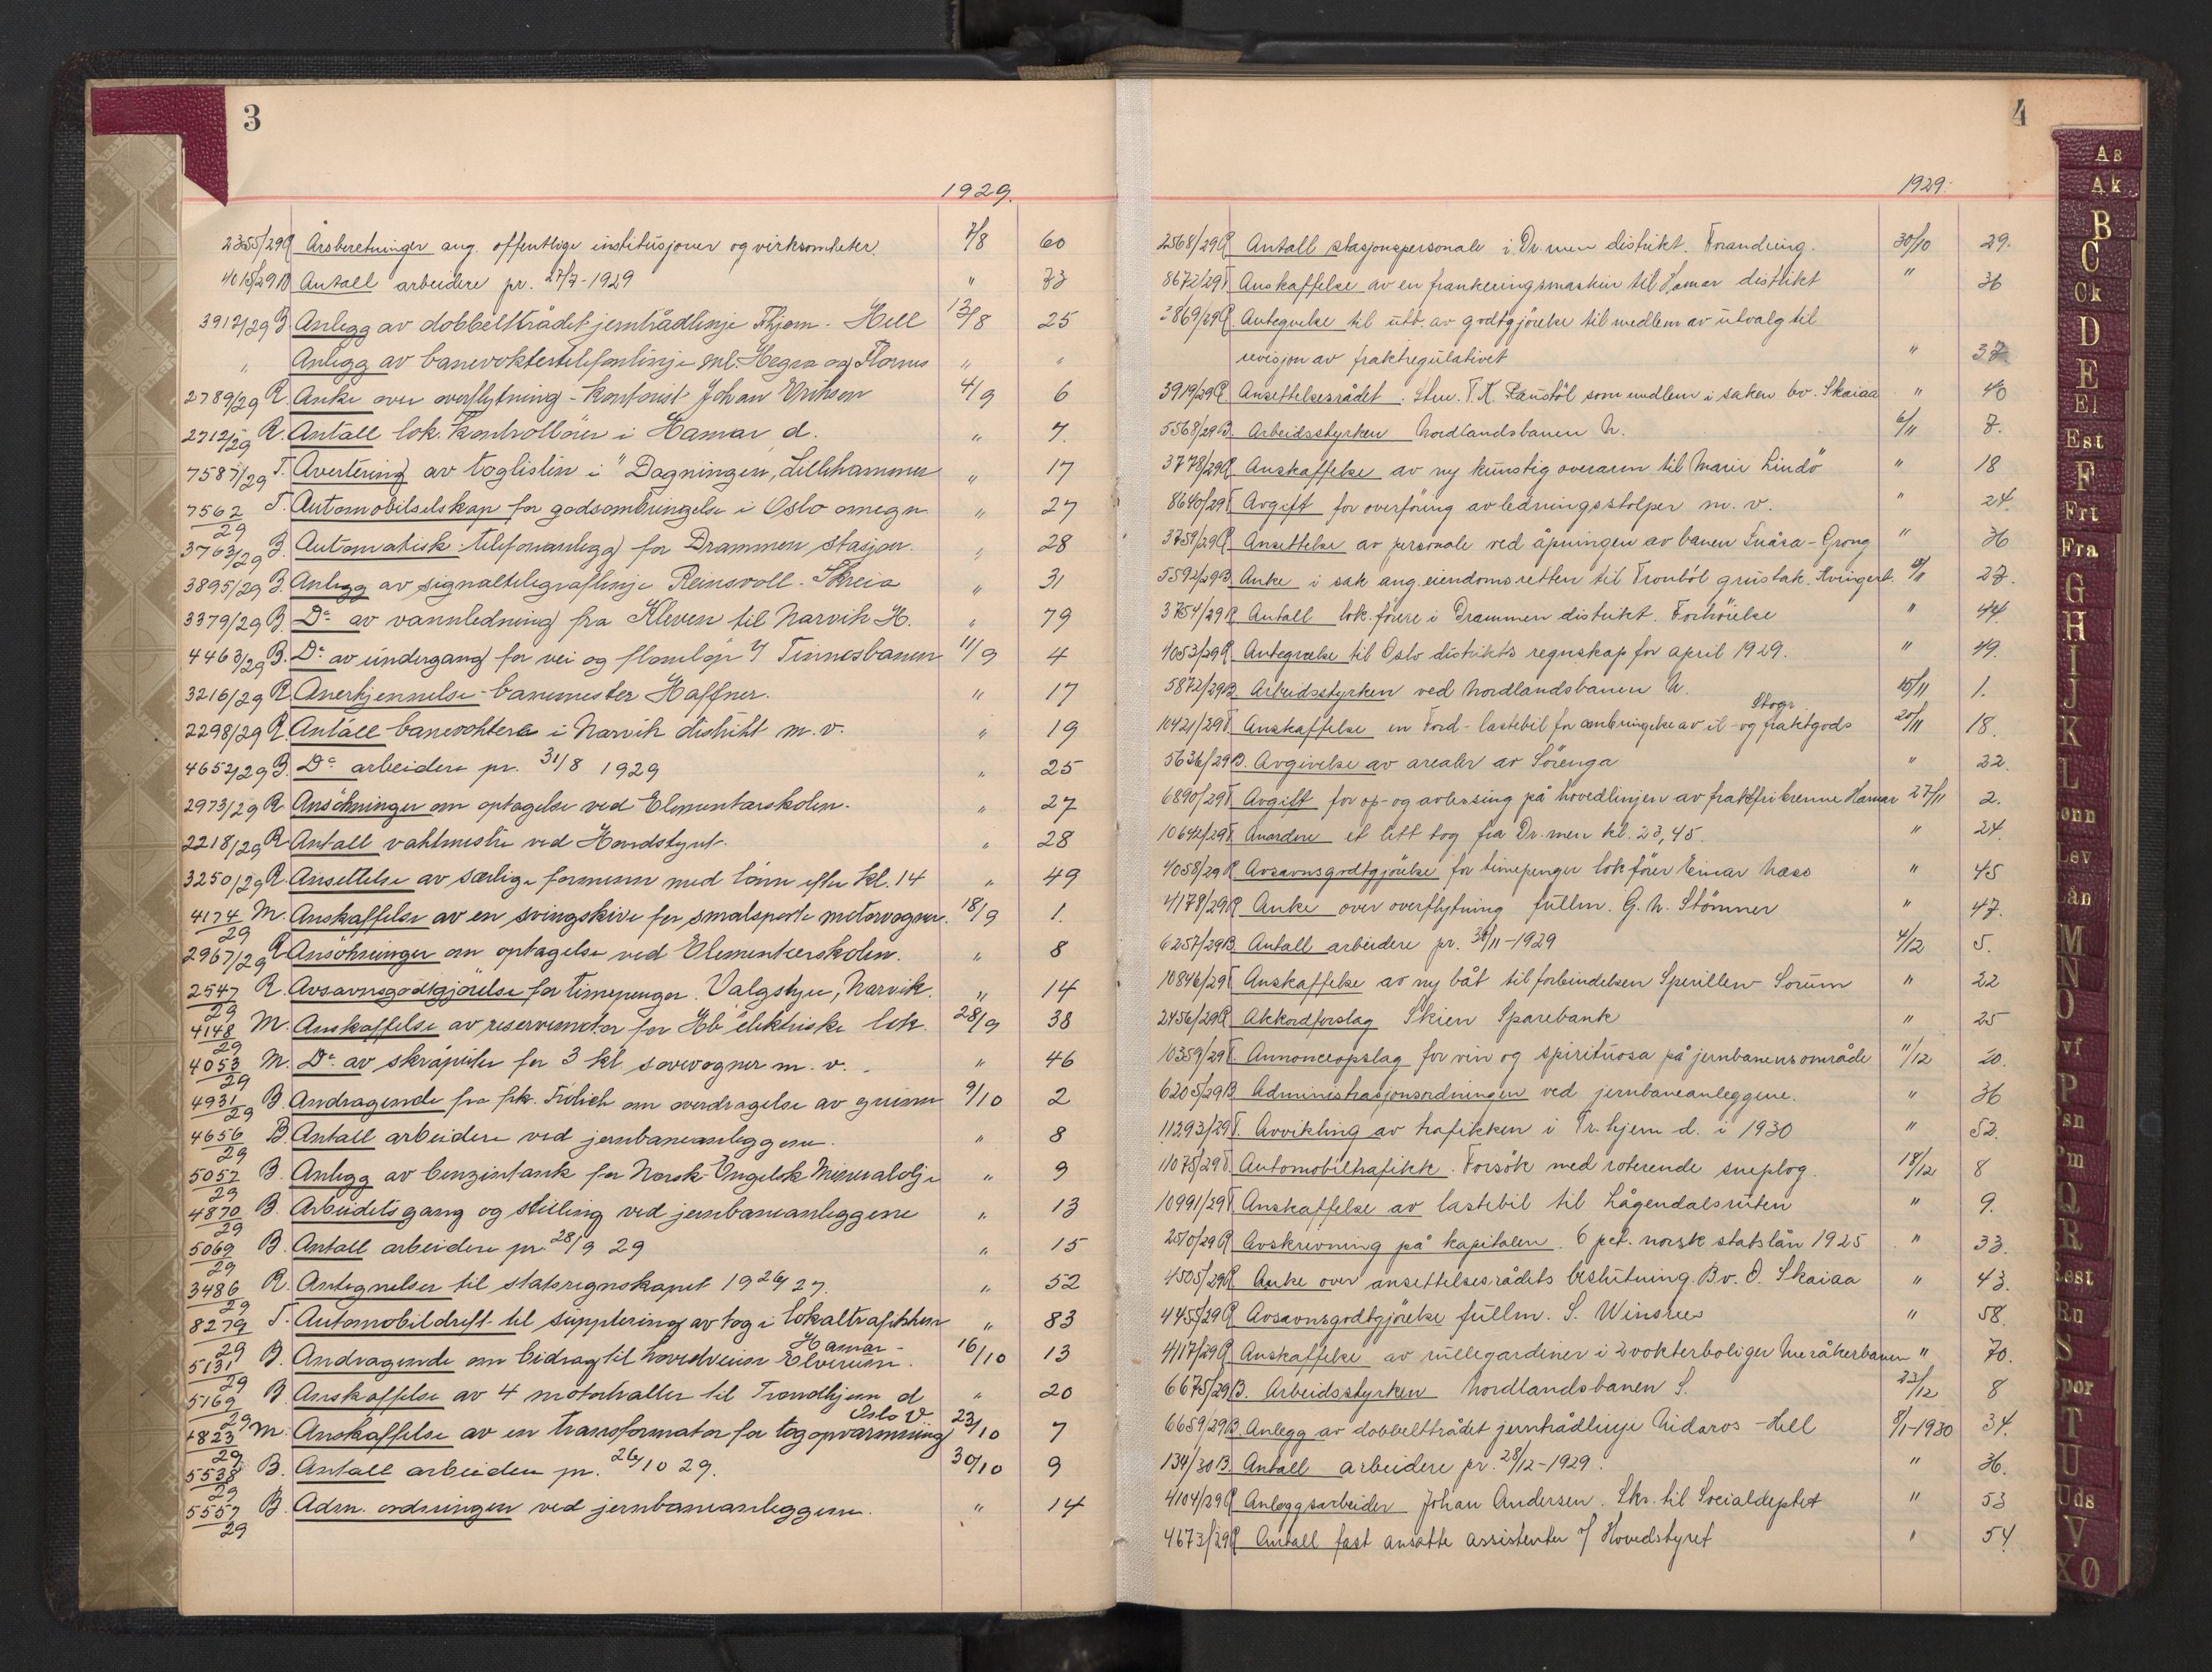 3
1929.
2355/29 R Årsberetninger ang. offentlige institusjoner og virksomheter. 7/8 60
4015/29 B Antall arbeidere pr. 27/7-1929 " 73
3912/29 B. Anlegg av dobbelttrådet jerntrådlinje Thjem. - Hell 13/8 25
" Anlegg av banevoktertelefonlinje ml. Hegra og Flornes " "
2789/29 R. Anke over overflytning - kontorist Johan Eriksen 4/9 6
2712/29 R. Antall lok. kontrollører i Hamar d. " 7.
7587/29 T. Avertering av toglisten i "Dagningen", Lillehammer " 17
7562/29 T. Automobilselskap for godsombringelse i Oslo omegn " 27
3763/29 B. Automatisk telefonanlegg for Drammen stasjon. " 28
3895/29 B. Anlegg av signaltelegraflinje Reinsvoll - Skreia " 31
3379/29 B. Do av vannledning fra Kleven til Narvik H. " 79
4463/29 B. Do av undergang for vei og flomløp % Tinnosbanen 11/9 4
3216/29 R. Anerkjennelse - banemester Haffner. " 17
2298/29 R. Antall banevoktere i Narvik distrikt m. v. " 19
4652/29 B. Do arbeidere pr. 31/8 1929 " 25
2973/29 R. Ansökninger om optagelse ved Elementarskolen. " 27
2218/29 R. Antall vaktmestre ved Hovedstyret. " 28
3250/29 R. Ansettelse av særlige formenn med lönn efter kl. 14 " 49
4174/29 M. Anskaffelse av en svingskive for smalsporte motorvogner. 18/9 1.
2967/29 R. Ansökninger om optagelse ved Elementærskolen. " 8
2547/29 R. Avsavnsgodtgjörelse for timepenger. Valgstyre, Narvik. " 14
4148/29 M. Anskaffelse av reservemotor for Hb elektriske lok. 28/9 38
4053/29 M. Do av skråputer for 3 kl. sovevogner m. v. " 46
4931/29 B. Andragende fra frk. Frölich om overdragelse av grunn 9/10 2
4656/29 B. Antall arbeidere ved jernbaneanleggene. " 8
5057/29 B. Anlegg av benzintank for Norsk-Engelsk Mineralolje " 9
4870/29 B. Arbeidets gang og stilling ved jernbaneanleggene " 13
5069/29 B. Antall arbeidere pr. 28/9 29 " 15
3486/29 R. Antegnelser til statsregnskapet 1926/27. " 52
8279/29 T. Automobildrift til supplering av tog i lokaltrafikken " 83
5131/29 B. Andragende om bidrag til hovedveien Hamar - Elverum. 16/10 13
5169/29 B. Anskaffelse av 4 motortraller til Trondhjem d " 20
4823/29 M. Anskaffelse av en transformator for togopvarmning Oslo V. 23/10 7
5538/29 B. Antall arbeidere pr. 26/10 29. 30/10 9
5557/29 B. Adm. ordningen ved jernbaneanleggene. " 14
4
1929.
2568/29 R Antall stasjonspersonale i Dr.men distrikt. Forandring. 30/10 29.
8672/29 T Anskaffelse av en frankeringsmaskin til Hamar distrikt " 36
3869/29 R Antegnelse til utb. av godtgjörelse til medlem av utvalg til
revisjon av fraktregulativet " 37
3919/29 R Ansettelsesrådet. Stm. T. K. Faustöl som medlem i saken bv. Skaiaa " 40
5568/29 B. Arbeidsstyrken Nordlandsbanen N. 6/11 8.
3778/29 R Anskaffelse av ny kunstig overarm til Marie Lindö " 18
8640/29 T Avgift for overföring av ledningsstolper m. v. " 24.
3759/29 R Ansettelse av personale ved åpningen av banen Snåsa - Grong " 36
5592/29 B. Anke i sak ang. eiendomsretten til Tronböl grustak. Kvingerb. 27.
3754/29 R Antall lok.förere i Drammen distrikt. Forhöielse " 44.
4053/29 R Antegnelse til Oslo distrikts regnskap for april 1929. " 49.
5872/29 B. Arbeidsstyrken ved Nordlandsbanen N. 15/11 1.
10421/29 T Anskaffelse en Ford-lastebil for ombringelse av il- og Stogr fraktgods 20/11 18.
5636/29 B. Avgivelse av arealer av Sörenga " 22.
6890/29 T Avgift for op- og avlessing på hovedlinjen av fraktfribrevene Hamar 27/11 2.
10642/29 T Anordne et lett tog fra Dr.men kl. 23,45. " 24.
4058/29 R Avsavnsgodtgjörelse for timepenger lok.förer Einar Næss " 45
4178/29 R Anke over overflytning fullm. G. N. Stömner " 47.
6257/29 B. Antall arbeidere pr. 30/11-1929 4/12 5.
10846/29 T Anskaffelse av ny båt til forbindelsen Sperillen - Sorum " 22
2456/29 R Akkordforslag Skien Sparebank " 25
10359/29 T. Annonceopslag for vin og spirituosa på jernbanens område 11/12 20.
6205/29 B. Administrasjonsordningen ved jernbaneanleggene. " 36
11293/29 T. Avvikling av trafikken i Tr.hjem d. i 1930 " 52.
11075/29 T. Automobiltrafikk. Forsök med roterende sneplog. 18/12 8
10991/29 T. Anskaffelse av lastebil til Lågendalsruten " 9.
2510/29 R Avskrivning på kapitalen. 6 pct. norsk statslån 1925 " 33.
4505/29 R Anke over ansettelsesrådets beslutning. Bv. O. Skaiaa " 43.
4455/29 R Avsavnsgodtgjörelse fullm. S. Winsnes " 58.
4117/29 R Anskaffelse av rullegardiner i 2 vokterboliger Meråkerbanen " 70.
6675/29 B. Arbeidsstyrken Nordlandsbanen S. 23/12 8
6659/29 B Anlegg av dobbelttrådet jerntrådlinje Nidaros - Hell 8/1-1930 34.
134/30 B. Antall arbeidere pr. 28/12-1929. " 36.
4104/29 R Anleggsarbeider Johan Andersen. Skr. til Socialdeptet " 53
4673/29 R Antall fast ansatte assistenter % Hovedstyret " 54.
AB
Ak
B
C
Ck
D
E
El
Est
F
Frt
Fra
G
H
I
J
K
L
Lønn
Lev
Lån
M
N
O
Ovf
P
Psn
Pm
Q
R
Rest
Ru
S
Spor
T
U
Uds
V
XØ